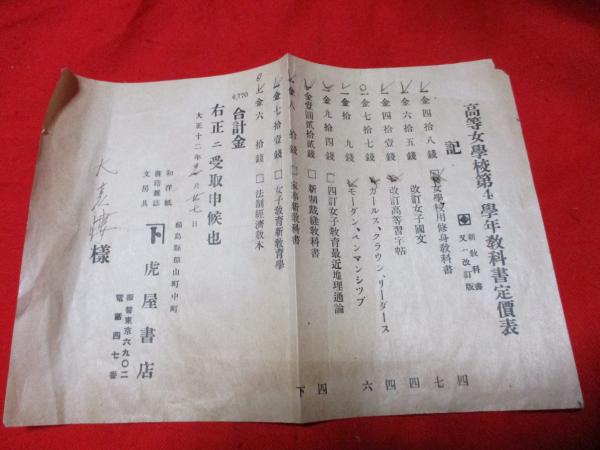 高等女學校第4學年教科書定價表
新教科書
又ハ改訂版
記
金四拾八錢 女學校用修身教科書 四
金六拾五錢 改訂女子國文 七
金四拾壹錢 改訂高等習字帖 四
金七拾七錢 ガールス、クラウン、リーダース 四
金拾九錢 モーダン、ペンマンシツプ 六
金九拾四錢 □ 四訂女子教育最近地理通論
金壹圓貳拾貳錢 □ 新制裁縫教科書 四
金八拾錢 □ 家事新教科書 下
金七拾壹錢 □ 女子教育新教育學
金六拾錢 □ 法制經濟教本
合計金
右正ニ受取申候也
大正十二年 月 日
福島縣郡山町中町
和洋紙
書籍雜誌
文房具
虎屋書店
振替東京六九〇二
電話四七番
樣